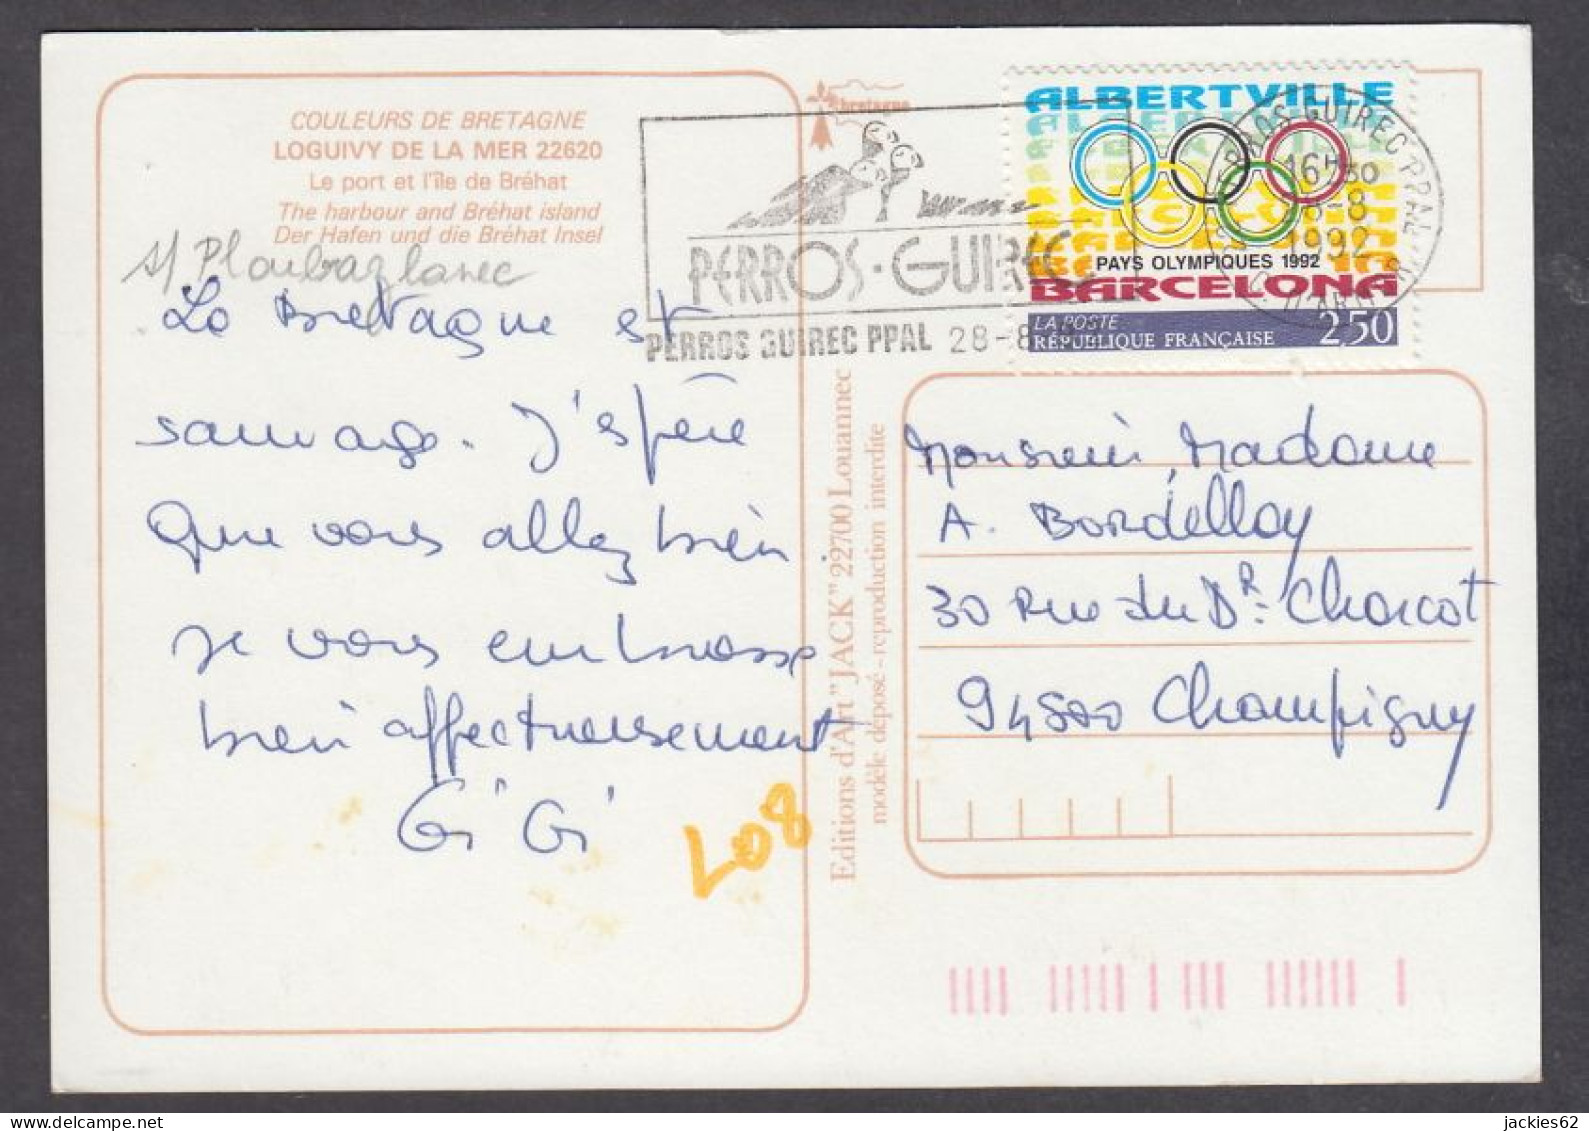 COULEURS DE BRETAGNE
LOGUIVY DE LA MER 22620
Le port et l'île de Bréhat
The harbour and Bréhat island
Der Hafen und die Bréhat Insel
s/ Ploubazlanec
La Bretagne est
sauvage. J'espère
que vous allez bien
je vous embrasse
bien affectueusement
Gi Gi
L08
bretagne
PERROS-GUIREC
PERROS GUIREC PPAL 28-8
ALBERTVILLE
PAYS OLYMPIQUES 1992
BARCELONA
LA POSTE
RÉPUBLIQUE FRANÇAISE 2,50
PERROS-GUIREC PPAL
16H30
28-8
1992
Editions d'Art "JACK" 22700 Louannec
modèle déposé - reproduction interdite
Monsieur, Madame
A. Bordelloy
30 Rue du DR. Charcot
94500 Champigny
jackies62